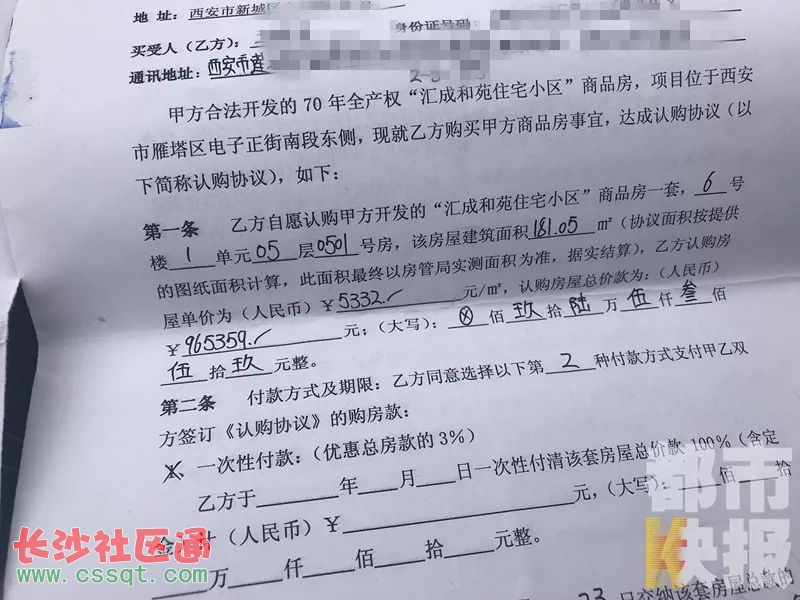 地 址：西安市新城区
买受人（乙方）： 身份证号码：
通讯地址：西安市莲
甲方合法开发的 70 年全产权“汇成和苑住宅小区”商品房，项目位于西安
市雁塔区电子正街南段东侧，现就乙方购买甲方商品房事宜，达成认购协议（以
下简称认购协议），如下：
第一条 乙方自愿认购甲方开发的“汇成和苑住宅小区”商品房一套，6 号
楼 1 单元 05 层 0501 号房，该房屋建筑面积 181.05 m²（协议面积按提供
的图纸面积计算，此面积最终以房管局实测面积为准，据实结算），乙方认购房
屋单价为（人民币）￥5332／ 元/m²，认购房屋总价款为：（人民币）
￥965359.／ 元；（大写）：ⓧ 佰 玖 拾 陆 万 伍 仟 叁 佰
伍 拾 玖 元整。
第二条 付款方式及期限：乙方同意选择以下第 2 种付款方式支付甲乙双
方签订《认购协议》的购房款：
一次性付款：（优惠总房款的 3%）
乙方于 年 月 日一次性付清该套房屋总价款 100%（含定
金 计（人民币）￥ 元，（大写）： 佰 拾
万 仟 佰 拾 元整。
23 日交纳该套房屋总款的
都市快报
长沙社区通
www.cssqt.com